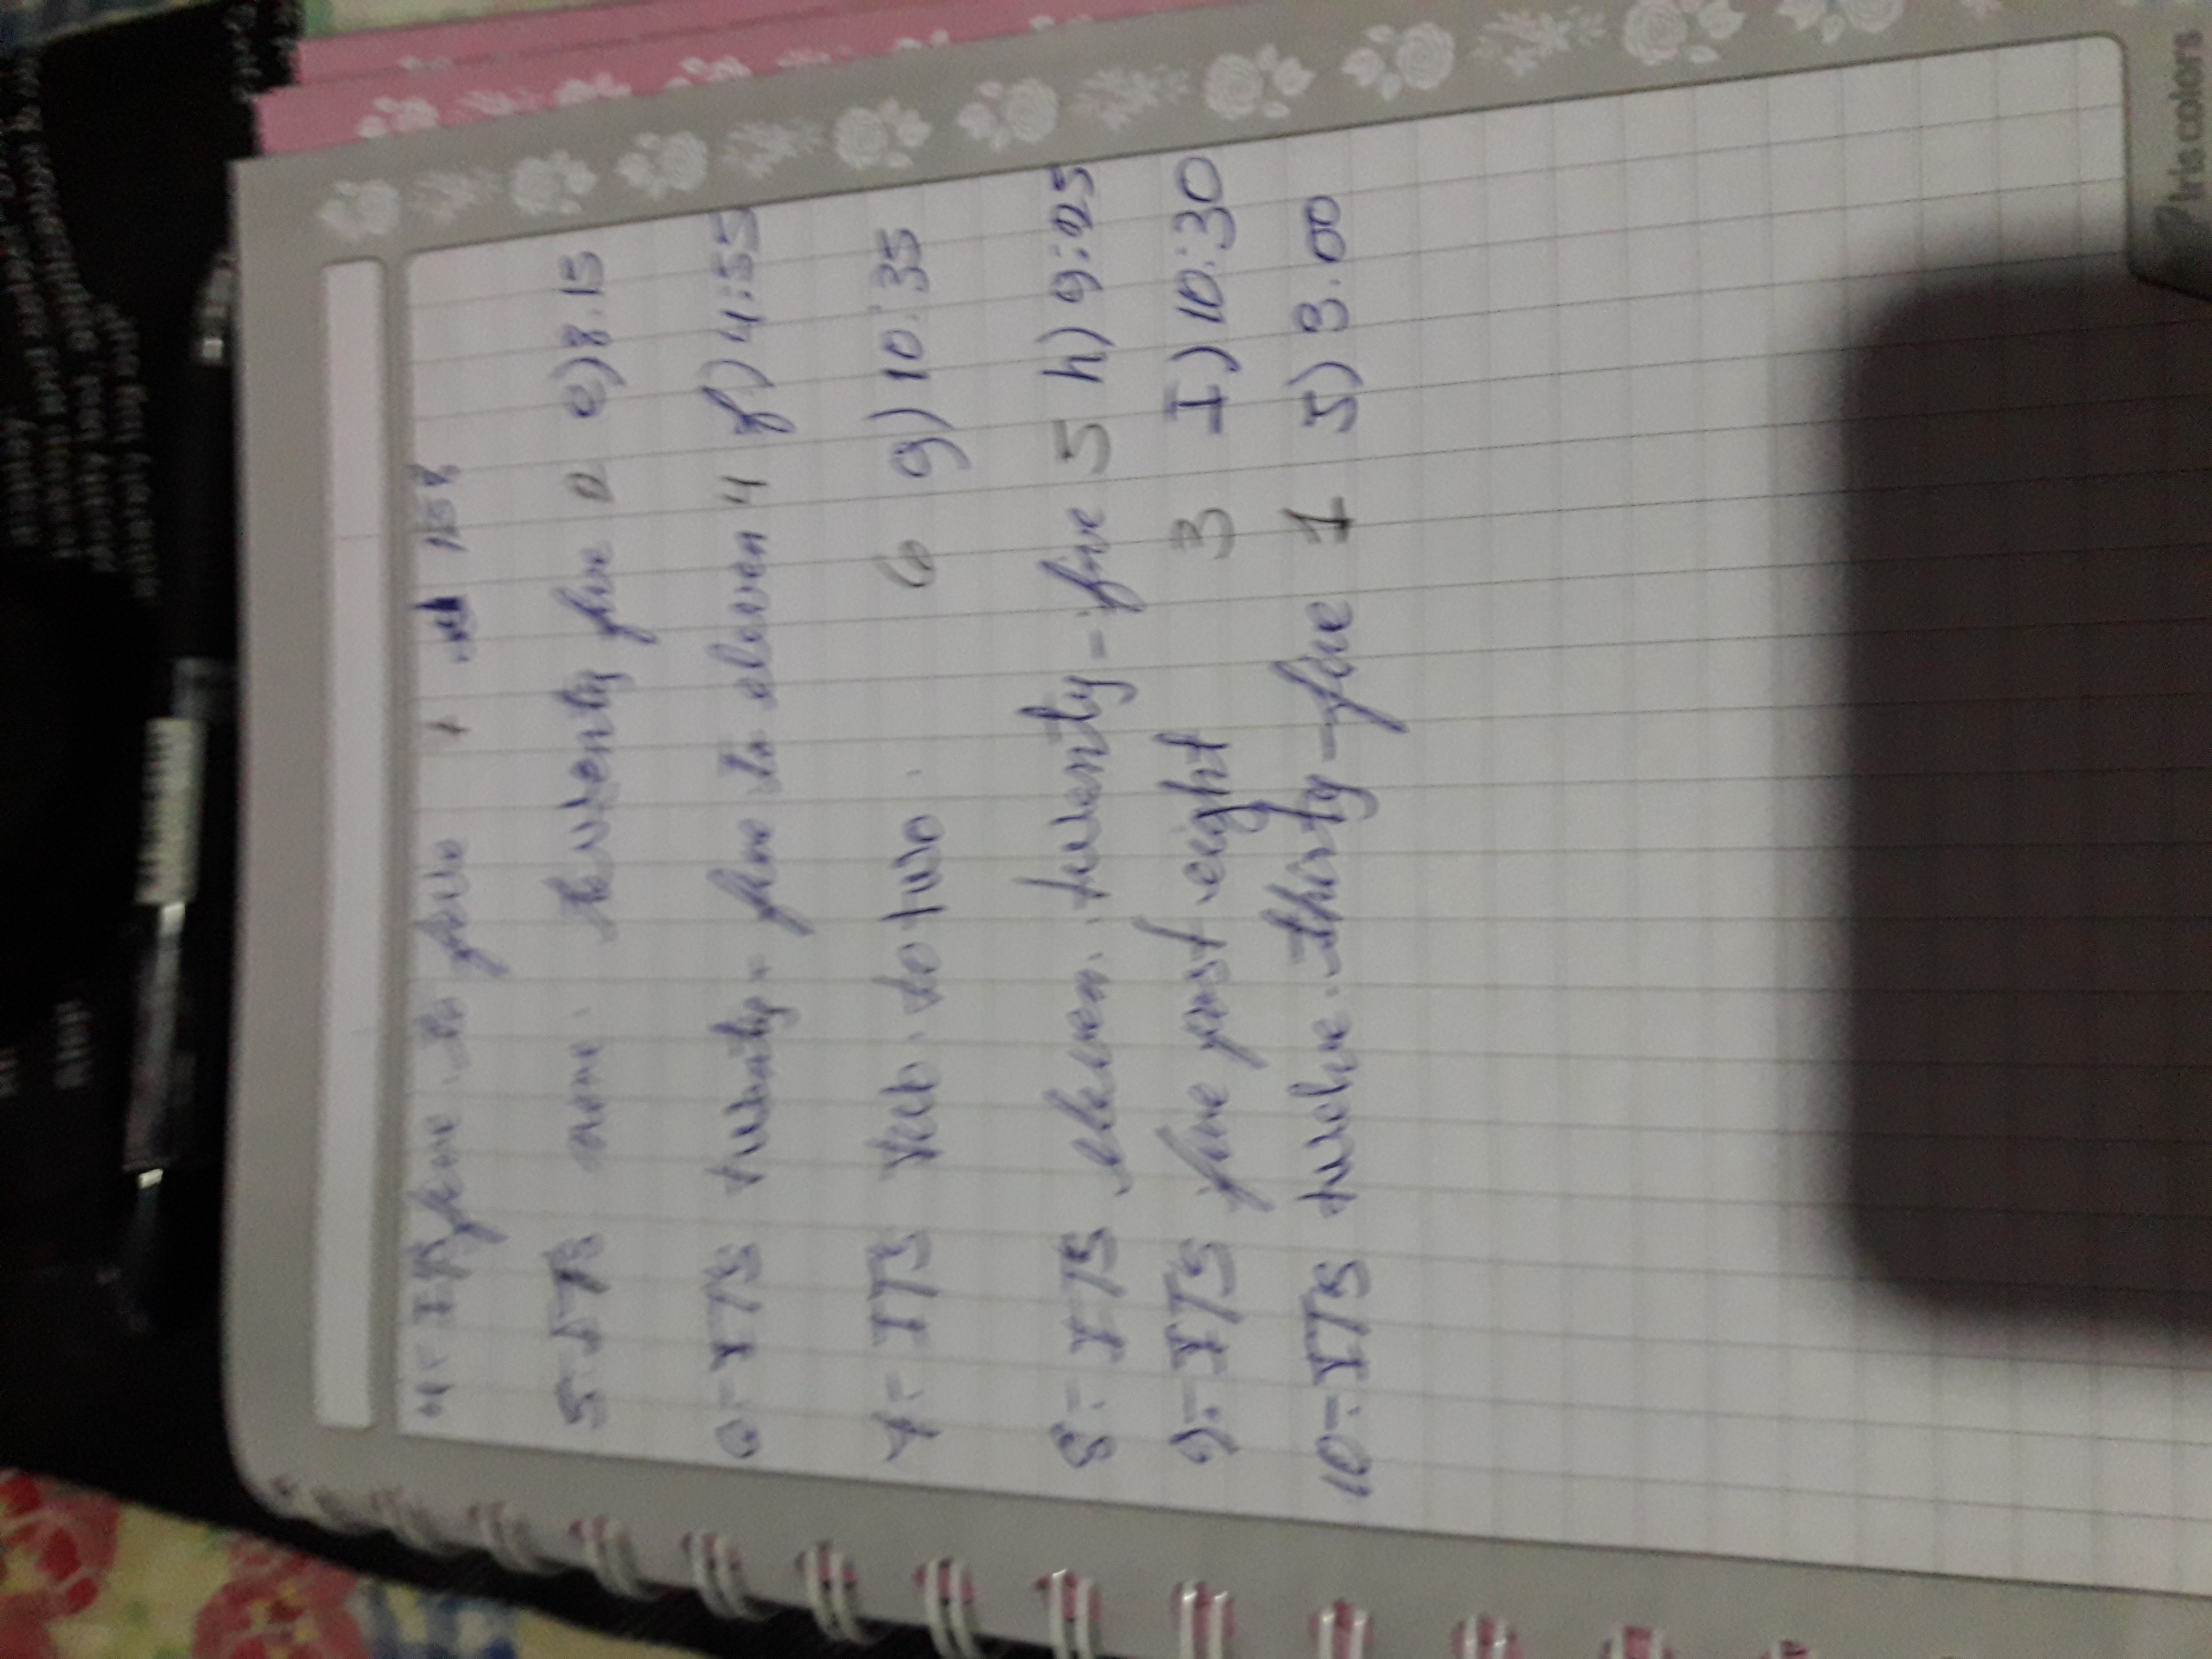 4-ITS five to five 1:58
5-ITS nine. twenty five 2 e) 8.15
6-ITS twenty-five to eleven 4 f) 4:55
7-ITS to two. 6 g) 10:35
8-ITS eleven. twenty-five 5 h) 9:25
9-ITS five past eight 3 I) 10:30
10-ITS twelve. thirty-five 1 J) 3.00
Iris colors